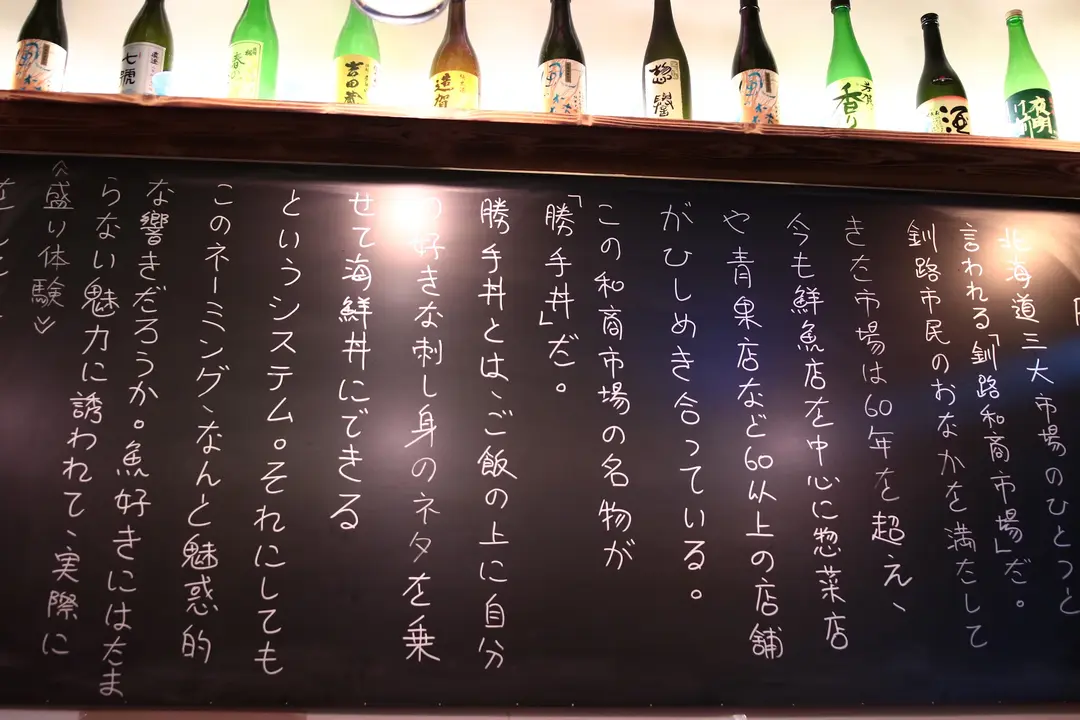 七號
春
吉田蔵
遠賀
惣譽
香り
酒
夜明け
北海道三大市場のひとつと
言われる「釧路和商市場」だ。
釧路市民のおなかを満たして
きた市場は60年を超え、
今も鮮魚店を中心に惣菜店
や青果店など60以上の店舗
がひしめき合っている。
この和商市場の名物が
「勝手丼」だ。
勝手丼とは、ご飯の上に自分
の好きな刺し身のネタを乗
せて海鮮丼にできる
というシステム。それにしても
このネーミング、なんと魅惑的
な響きだろうか。魚好きにはたま
らない魅力に誘われて、実際に
盛り体験